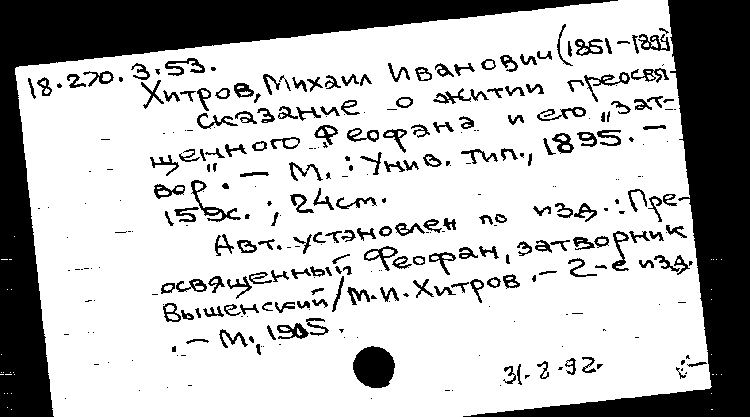 18.270.3.53.
Хитров, Михаил Иванович (1851-1899)
Сказание о житии преосвя-
щенного Феофана и его „зат-
вор". — М. : Унив. тип., 1895. —
159с. ; 24cm.
Авт. установлен по изд.: Пре-
освященный Феофан, затворник
Вышенский / М.И. Хитров. — 2-е изд.
. — М., 1905.
31.8.92.